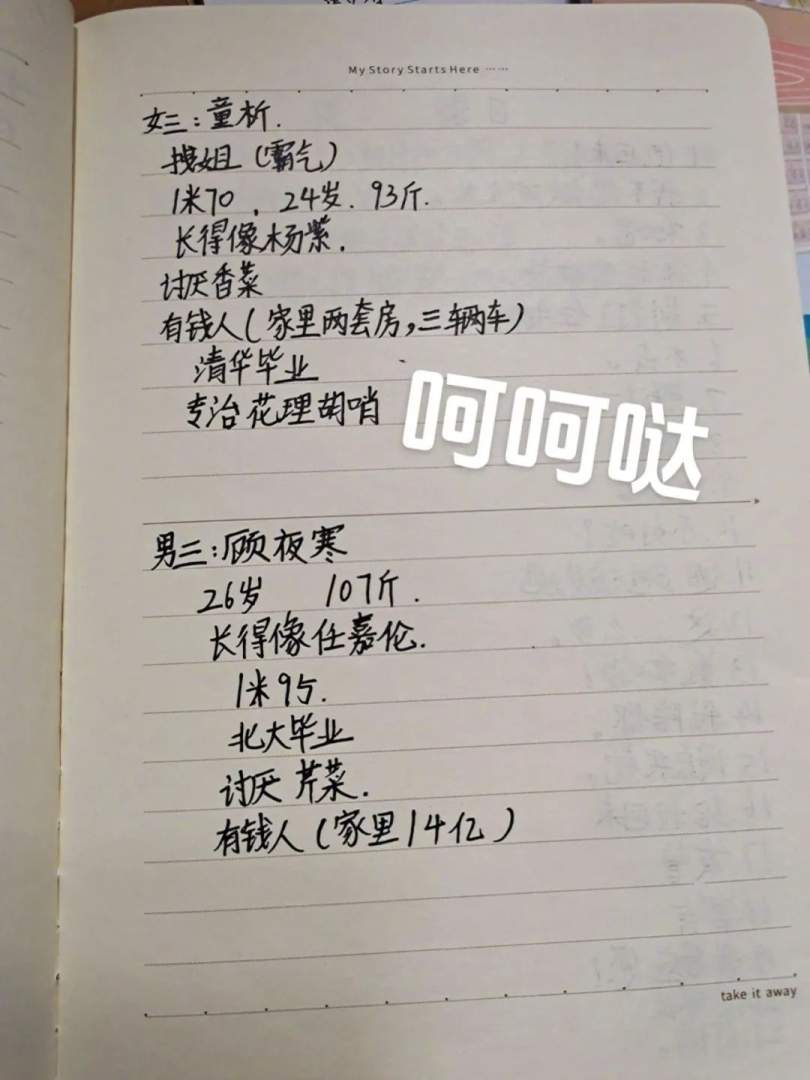 My Story Starts Here ……
女三：童析.
拽姐（霸气）
1米70，24岁.93斤.
长得像杨紫.
讨厌香菜
有钱人（家里两套房,三辆车）
清华毕业
专治花理胡哨
呵呵哒
男三：顾夜寒
26岁 107斤.
长得像任嘉伦.
1米95.
北大毕业
讨厌芹菜.
有钱人（家里14亿）
take it away